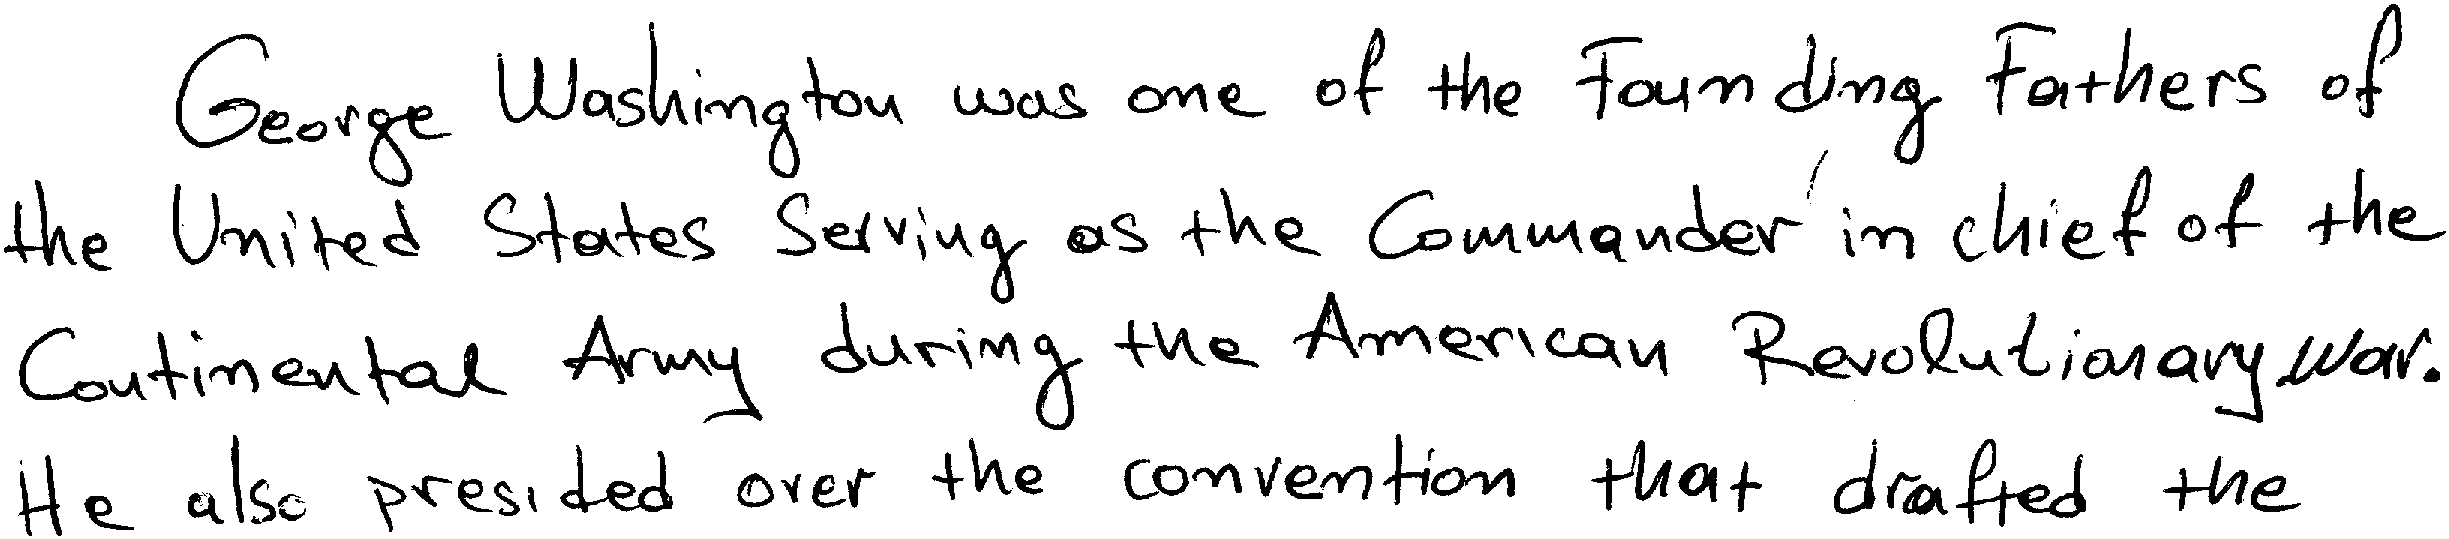 George Washington was one of the Founding Fathers of
the United States Serving as the Commander in chief of the
Continental Army during the American Revolutionary war.
He also presided over the convention that drafted the